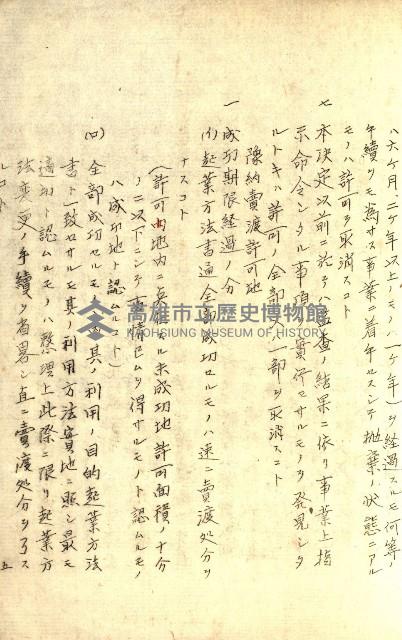 ハ六ケ月、二ケ年以上ノモノハ一ケ年)ヲ経過スルモ何等ノ
手續ヲモ為サス事業ニ着手セスシテ抛棄ノ状態ニアル
モノハ許可ヲ取消スコト
七 本決定以前ニ於ケル監査ノ結果ニ依リ事業上指
示命令シタル事項ヲ實行セサルモノヲ発見シタ
ルトキハ許可ノ全部 一部ヲ取消スコト
豫約賣渡許可地
一 成功期限経過ノ分
(イ) 起業方法書通全部成功セルモノハ速ニ賣渡処分ヲ
ナスコト
(許可 地内ニ 未成功地許可面積ノ十分
ノ二以下ニシテ事情已ムヲ得サルモノト認ムルモノ
ハ成功地ト認ムルコト)
(ロ) 全部成功セルモ 其ノ利用ノ目的起業方法
書ト一致セサルモ其ノ利用方法實地ニ照シ最モ
適切ト認ムルモノハ整理上此際ニ限リ起業方
法変更ノ手續ヲ省畧シ直ニ賣渡処分ヲ了ス
ルコト
五
高雄市立歷史博物館
KAOHSIUNG MUSEUM OF HISTORY